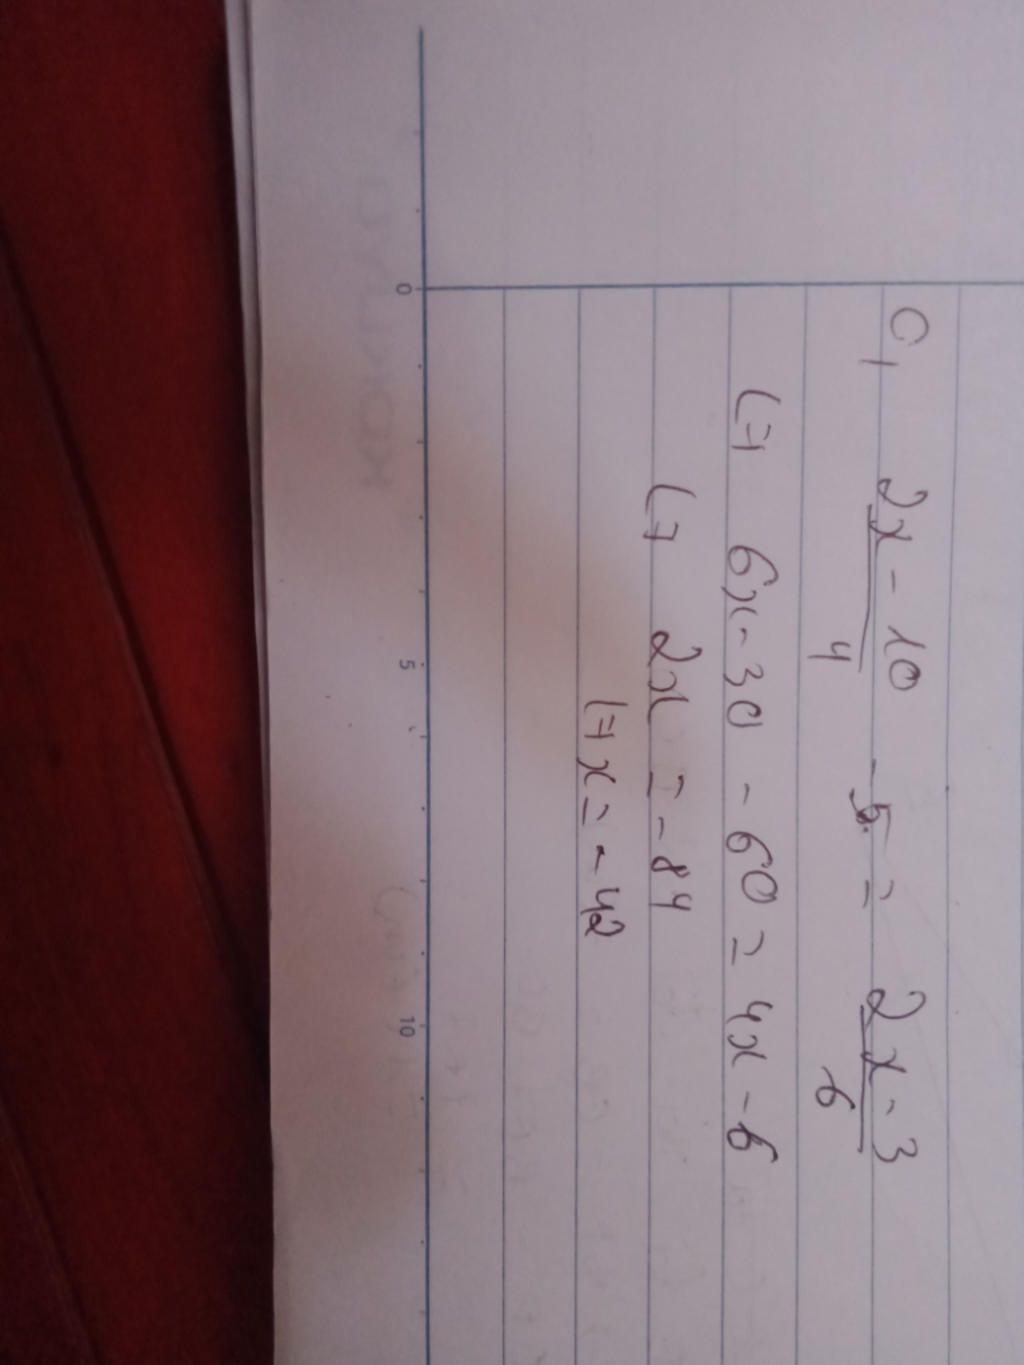 c, (2x - 10)/4 - 5 = (2x - 3)/6
<=> 6x - 30 - 60 = 4x - 6
<=> 2x = - 84
<=> x = - 42
0 5 10